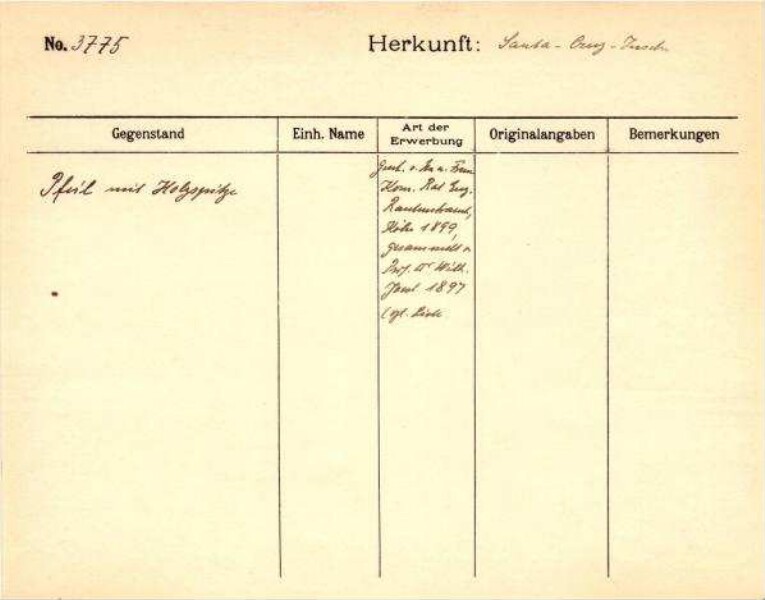 No. 3775 Herkunft: Santa - Cruz - Inseln
Gegenstand Einh. Name Art der Erwerbung Originalangaben Bemerkungen
Pfeil mit Holzspitze
Gesch. v. Hr. u. Frau
Kom. Rat Eug.
Rautenstrauch,
Köln 1899,
gesammelt v.
Prof. Dr Wilh.
Joest 1897
(vgl. Liste